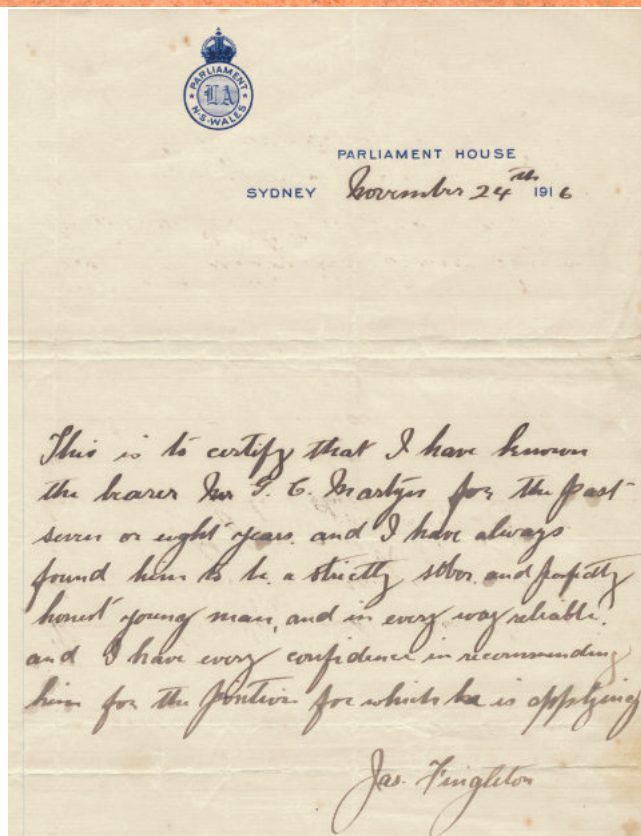 PARLIAMENT
LA
N·S·WALES
PARLIAMENT HOUSE
SYDNEY November 24th 1916
This is to certify that I have known
the bearer Mr G. C. Martyn for the past
seven or eight years. and I have always
found him to be a strictly sober and perfectly
honest young man, and in every way reliable.
and I have every confidence in recommending
him for the position for which he is applying
Jas. Fingleton